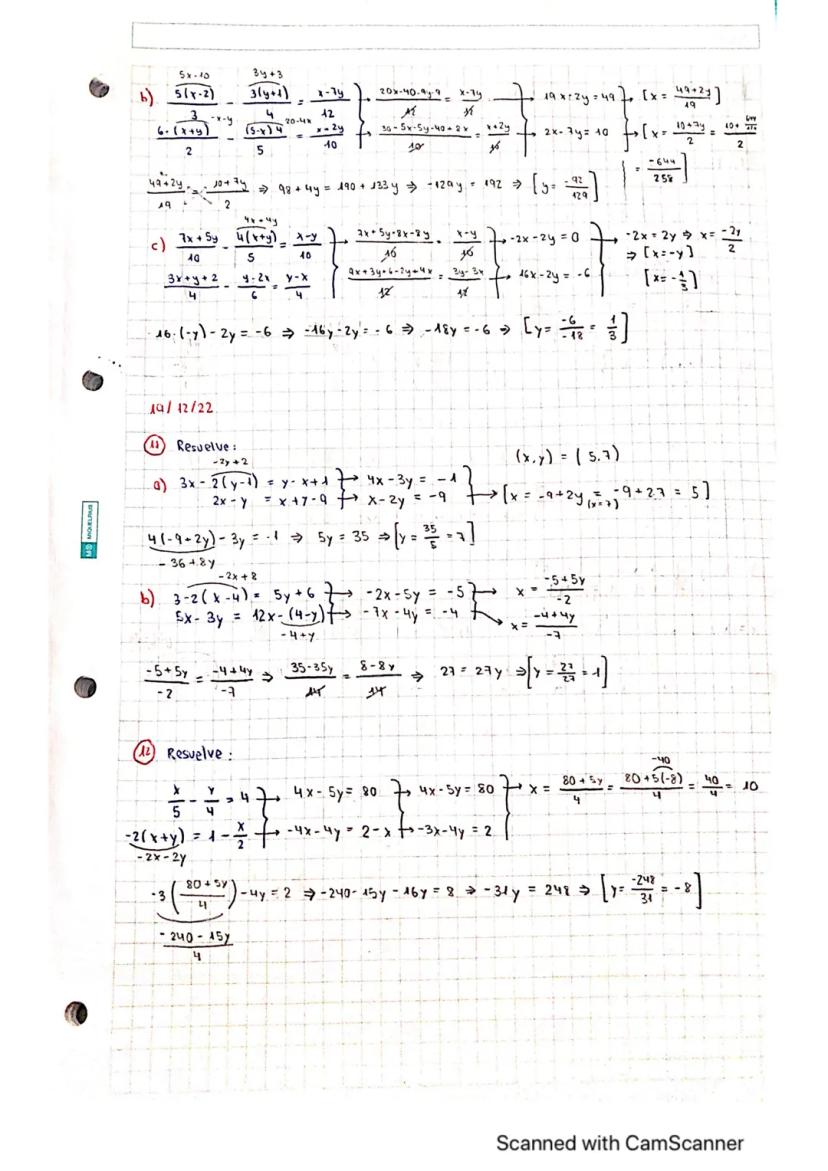 5x-10 3y+3
b) 5(x-2)/3 - 3(y+1)/4 = x-7y/12 → 20x-40-9y-9/12 = x-7y/12 → 19x-2y=49 → [x = 49+2y/19]
-x-y 20-4x
6-(x+y)/2 - (5-x)4/5 = x+2y/10 → 30-5x-5y-40+8x/10 = x+2y/10 → 2x-7y=10 → [x = 10+7y/2 = 10+
= -644/258]
49+2y/19 = 10+7y/2 ⇒ 98+4y = 190+133y ⇒ -129y = 192 ⇒ [y = -92/129]
4x+4y
c) 7x+5y/10 - 4(x+y)/5 = x-y/10 → 7x+5y-8x-8y/10 = x-y/10 → -2x-2y=0 → -2x=2y ⇒ x = -2y/2
⇒ [x=-y]
3x+y+2/4 - y-2x/6 = y-x/4 → 9x+3y+6-2y+4x/12 = 3y-3x/12 → 16x-2y=-6 [x=-1/3]
16·(-y)-2y=-6 ⇒ -16y-2y=-6 ⇒ -18y=-6 ⇒ [y = -6/-18 = 1/3]
19/12/22
11 Resuelve:
-2y+2 (x,y) = (5,7)
a) 3x-2(y-1) = y-x+1 → 4x-3y = -1
2x-y = x+y-9 → x-2y = -9 → [x = -9+2y = (x=7) -9+2·7 = 5]
4(-9+2y)-3y = -1 ⇒ 5y = 35 ⇒ [y = 35/5 = 7]
-36+8y
-2x+8
b) 3-2(x-4) = 5y+6 → -2x-5y = -5 → x = -5+5y/-2
5x-3y = 12x-(4-y) → -7x-4y = -4 → x = -4+4y/-7
-4+y
-5+5y/-2 = -4+4y/-7 ⇒ 35-35y/14 = 8-8y/14 ⇒ 27 = 27y ⇒ [y = 27/27 = 1]
12 Resuelve:
-40
x/5 - y/4 = 4 → 4x-5y = 80 → 4x-5y = 80 → x = 80+5y/4 = 80+5(-8)/4 = 40/4 = 10
-2(x+y) = 1-x/2 → -4x-4y = 2-x → -3x-4y = 2
-2x-2y
-3(80+5y/4)-4y = 2 ⇒ -240-15y-16y = 8 ⇒ -31y = 248 ⇒ [y = -248/31 = -8]
-240-15y/4
MIQUELRIUS
Scanned with CamScanner